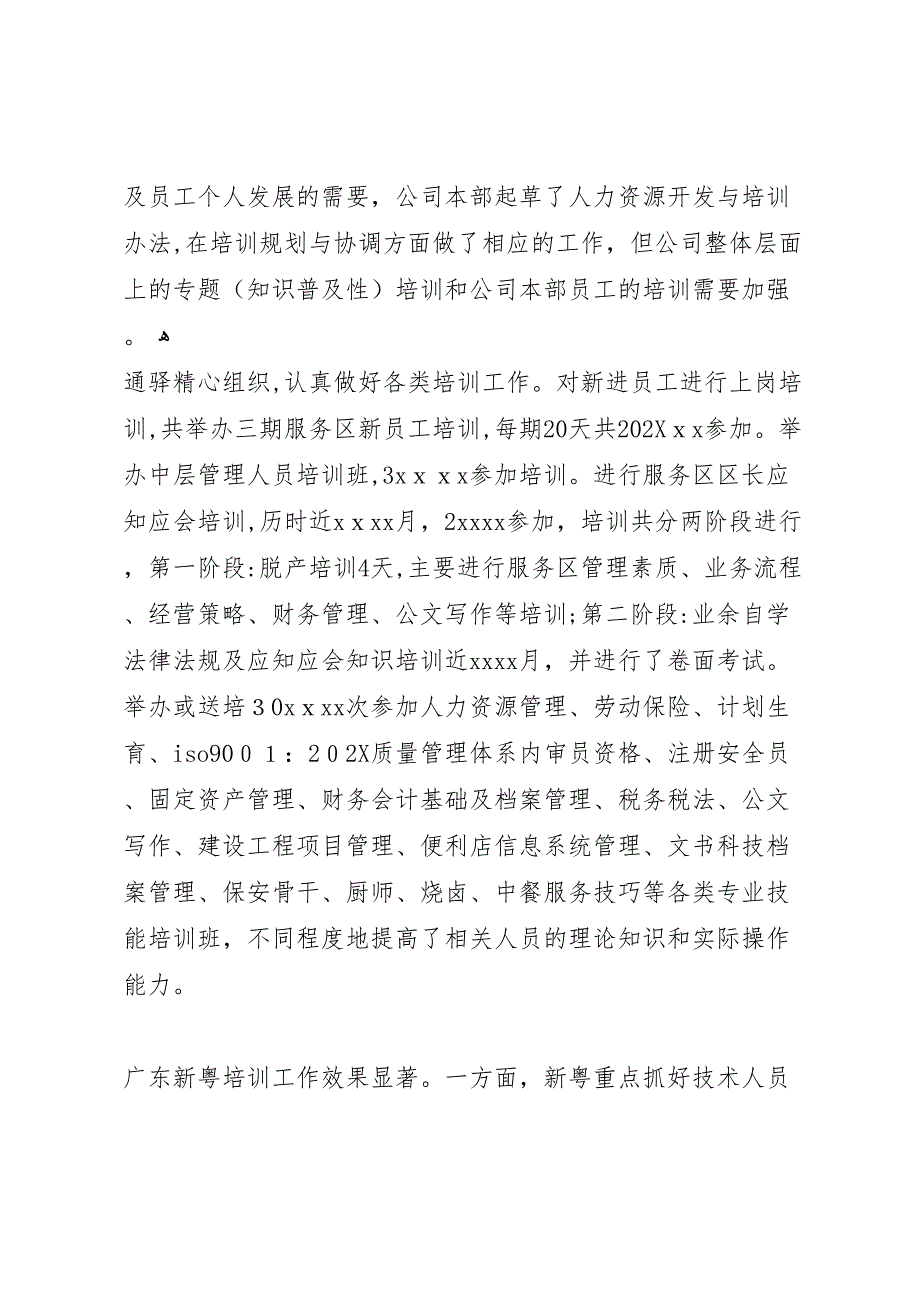 及员工个人发展的需要，公司本部起草了人力资源开发与培训
办法,在培训规划与协调方面做了相应的工作，但公司整体层面
上的专题（知识普及性）培训和公司本部员工的培训需要加强
。ﻫ
通驿精心组织,认真做好各类培训工作。对新进员工进行上岗培
训,共举办三期服务区新员工培训,每期20天共202Xｘx参加。举
办中层管理人员培训班,3xｘｘx参加培训。进行服务区区长应
知应会培训,历时近xｘxx月，2xxxx参加，培训共分两阶段进行
，第一阶段:脱产培训4天,主要进行服务区管理素质、业务流程
、经营策略、财务管理、公文写作等培训;第二阶段:业余自学
法律法规及应知应会知识培训近xxxx月，并进行了卷面考试。
举办或送培３0xｘxx次参加人力资源管理、劳动保险、计划生
育、iso90０１：２０2X质量管理体系内审员资格、注册安全员
、固定资产管理、财务会计基础及档案管理、税务税法、公文
写作、建设工程项目管理、便利店信息系统管理、文书科技档
案管理、保安骨干、厨师、烧卤、中餐服务技巧等各类专业技
能培训班，不同程度地提高了相关人员的理论知识和实际操作
能力。
广东新粤培训工作效果显著。一方面，新粤重点抓好技术人员